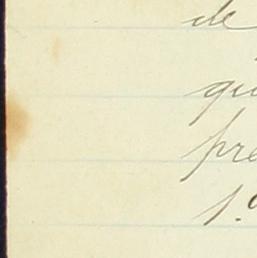 de
qu
pre
1.a